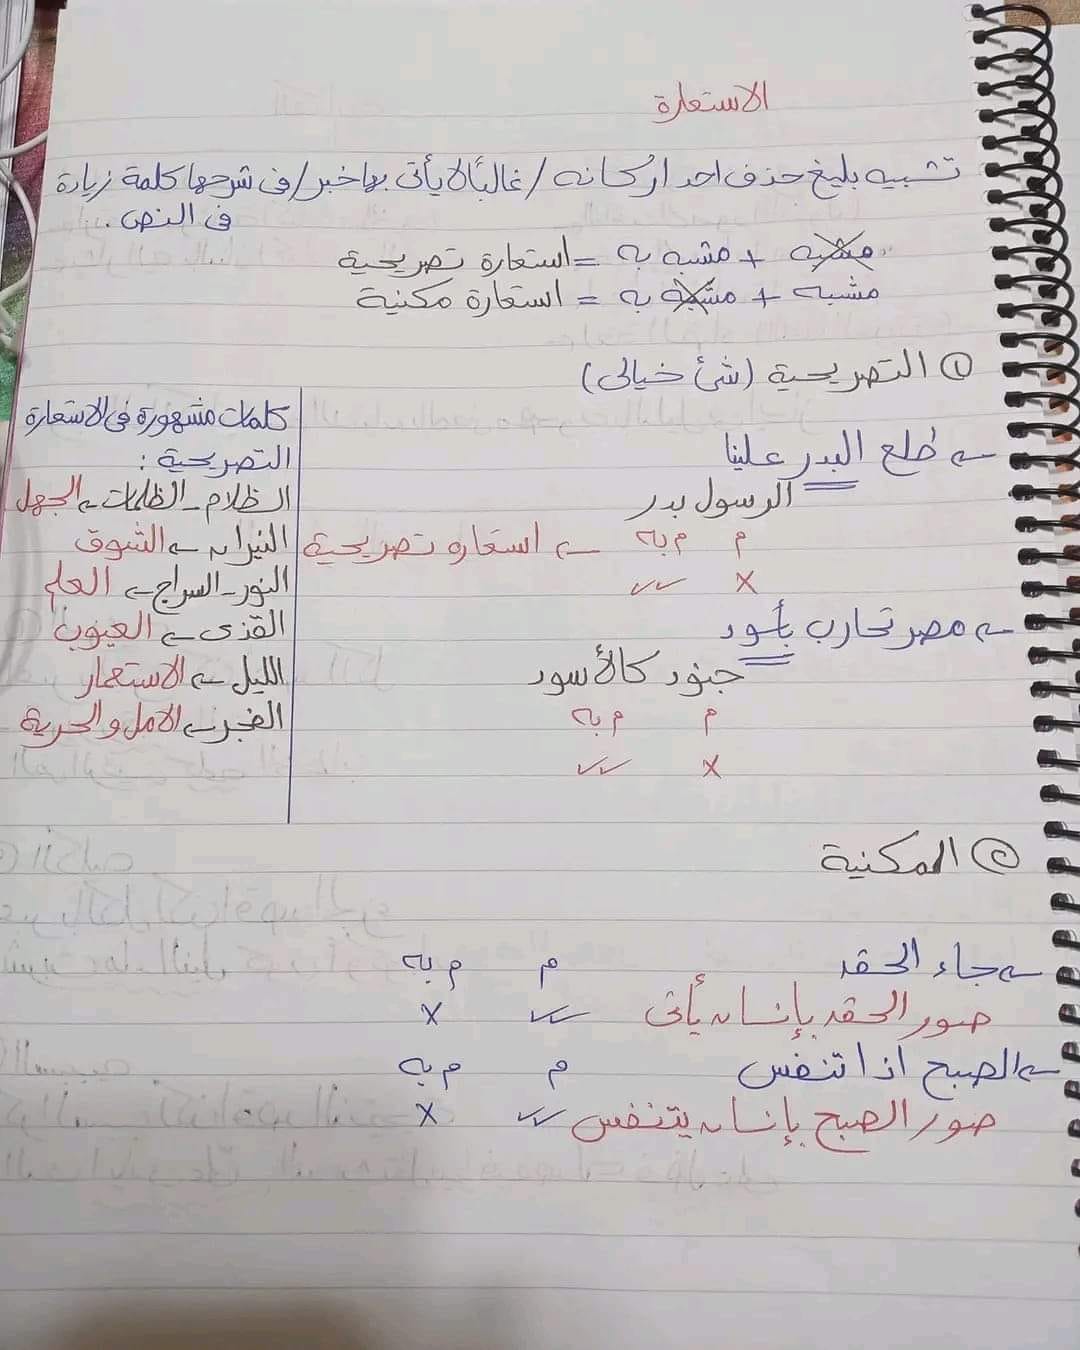 الاستعارة
تشبيه بليغ حذف احد اركانه / غالبًا لا يأتى بها خبر / فى شرحها كلمة زيادة
فى النص .
مشبه + مشبه به = استعارة تصريحية
مشبه + مشبه به = استعارة مكنية
① التصريحية (شئ خيالى)
← طلع البدر علينا
الرسول بدر
م م به ← استعاره تصريحية
× ✓✓
← مصر تحارب بأسود
جنود كالأسود
م م به
× ✓✓
كلمات مشهورة فى الاستعارة
التصريحية :
الظلام - الظلمات ← الجهل
النيران ← الشوق
النور - السراج ← العلم
القذى ← العيوب
الليل ← الاستعمار
الفجر ← الامل والحرية
② المكنية
← جاء الحقد م م به
صور الحقد بإنسان يأتى ✓✓ ×
← الصبح اذا تنفس م م به
صور الصبح بإنسان يتنفس ✓✓ ×